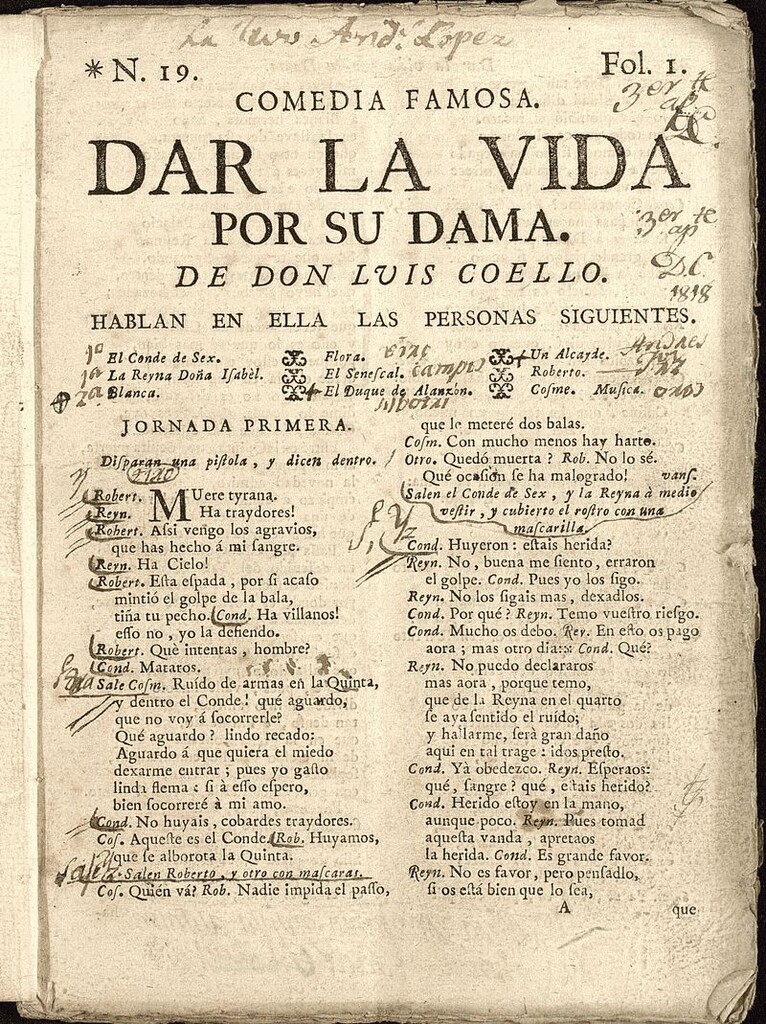 La Luis Andˢ Lopez
* N. 19.
Fol. 1.
3er te
ap
COMEDIA FAMOSA.
DAR LA VIDA
POR SU DAMA.
3er te
ap
D.C.
1818
DE DON LVIS COELLO.
HABLAN EN ELLA LAS PERSONAS SIGUIENTES.
1º El Conde de Sex. Flora. Un Alcayde.
1ª La Reyna Doña Iſabèl. El Seneſcal. Campos Roberto.
2ª Blanca. El Duque de Alanzòn. Coſme. Muſica.
JORNADA PRIMERA.
Diſparan una piſtola, y dicen dentro.
Robert. MUere tyrana.
Reyn. Ha traydores!
Robert. Aſsi vengo los agravios,
que has hecho á mi ſangre.
Reyn. Ha Cielo!
Robert. Eſta eſpada, por ſi acaſo
mintió el golpe de la bala,
tiña tu pecho. Cond. Ha villanos!
eſſo no, yo la defiendo.
Robert. Què intentas, hombre?
Cond. Mataros.
Sale Coſm. Ruído de armas en la Quinta,
y dentro el Conde! qué aguardo,
que no voy á ſocorrerle?
Qué aguardo? lindo recado:
Aguardo á que quiera el miedo
dexarme entrar; pues yo gaſto
linda flema: ſi à eſſo eſpero,
bien ſocorreré à mi amo.
Cond. No huyais, cobardes traydores.
Coſ. Aqueſte es el Conde. Rob. Huyamos,
que ſe alborota la Quinta.
Salen Roberto, y otro con maſcaras.
Coſ. Quién vá? Rob. Nadie impida el paſſo,
que le meteré dos balas.
Coſm. Con mucho menos hay harto.
Otro. Quedó muerta? Rob. No lo sé.
Qué ocaſion ſe ha malogrado! vanſ.
Salen el Conde de Sex, y la Reyna à medio
veſtir, y cubierto el roſtro con una
maſcarilla.
Cond. Huyeron: eſtais herida?
Reyn. No, buena me ſiento, erraron
el golpe. Cond. Pues yo los ſigo.
Reyn. No los ſigais mas, dexadlos.
Cond. Por qué? Reyn. Temo vueſtro rieſgo.
Cond. Mucho os debo. Rey. En eſto os pago
aora; mas otro dia::: Cond. Qué?
Reyn. No puedo declararos
mas aora, porque temo,
que de la Reyna en el quarto
ſe aya ſentido el ruído;
y hallarme, ſerà gran daño
aqui en tal trage: idos preſto.
Cond. Yà obedezco. Reyn. Eſperaos:
qué, ſangre? qué, eſtais herido?
Cond. Herido eſtoy en la mano,
aunque poco. Reyn. Pues tomad
aqueſta vanda, apretaos
la herida. Cond. Es grande favor.
Reyn. No es favor, pero penſadlo,
ſi os eſtá bien que lo ſea,
A que